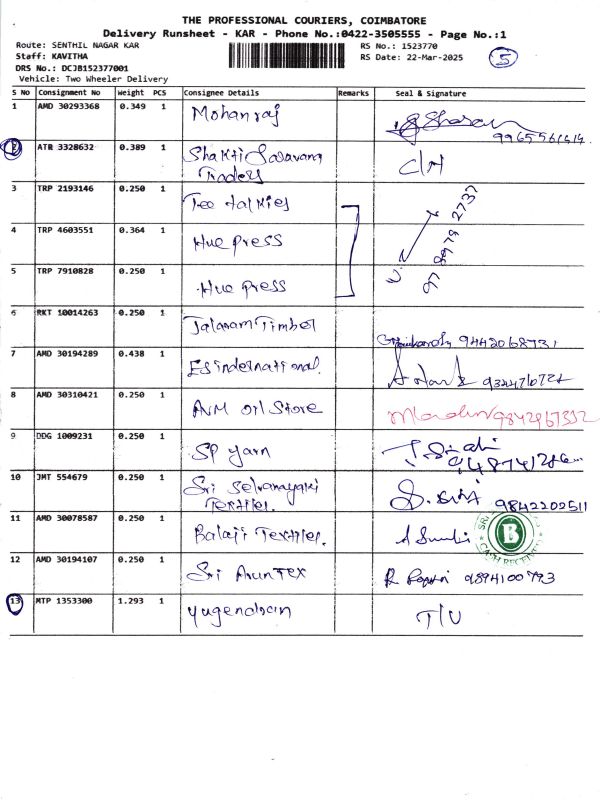 THE PROFESSIONAL COURIERS, COIMBATORE
Delivery Runsheet - KAR - Phone No.:0422-3505555 - Page No.:1
Route: SENTHIL NAGAR KAR RS No.: 1523770
Staff: KAVITHA RS Date: 22-Mar-2025 5
DRS No.: DCJB152377001
Vehicle: Two Wheeler Delivery
S No Consignment No Weight PCS Consignee Details Remarks Seal & Signature
1 AMD 30293368 0.349 1 Mohanraj
2 ATR 3328632 0.389 1 Shakti Saravana Traders C/H
3 TRP 2193146 0.250 1 Tee talkies
4 TRP 4603551 0.364 1 Hue press
5 TRP 7910828 0.250 1 Hue press
6 RKT 10014263 0.250 1 Jalaram Timber 9442068731
7 AMD 30194289 0.438 1 ES international.
8 AMD 30310421 0.250 1 AVM oil Store
9 DDG 1009231 0.250 1 SP yarn
10 JMT 554679 0.250 1 Sri Selvanayaki Textiles. 9842202511
11 AMD 30078587 0.250 1 Balaji Textiles. B
12 AMD 30194107 0.250 1 Sri Arun Tex 9894100793
13 MTP 1353300 1.293 1 yugendran T/U